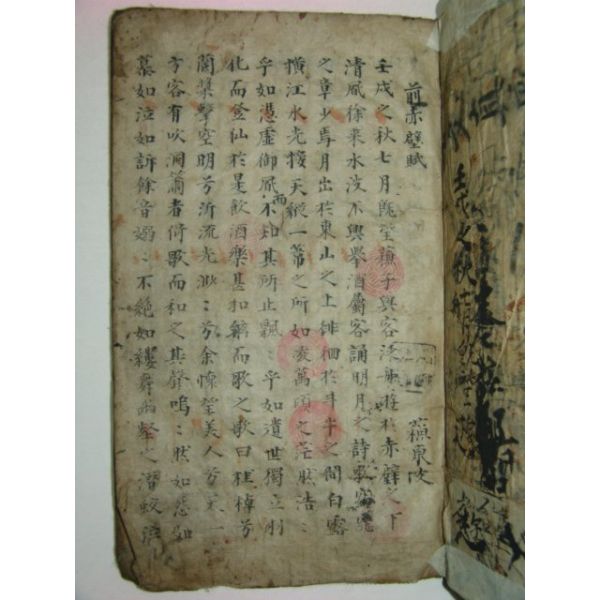 前赤壁賦
蘇東坡
壬戌之秋七月旣望蘇子與客泛舟遊於赤壁之下
清風徐來水波不興擧酒屬客誦明月之詩歌窈窕
之章少焉月出於東山之上徘徊於斗牛之間白露
橫江水光接天縱一葦之所如凌萬頃之茫然浩〻
乎如憑虛御風而不知其所止飄〻乎如遺世獨立羽
化而登仙於是飮酒樂甚扣舷而歌之歌曰桂棹兮
蘭槳擊空明兮泝流光渺〻兮余懷望美人兮天一
方客有吹洞簫者倚歌而和之其聲嗚〻然如怨如
慕如泣如訴餘音嫋〻不絶如縷舞幽壑之潛蛟泣
壬戌之秋七月